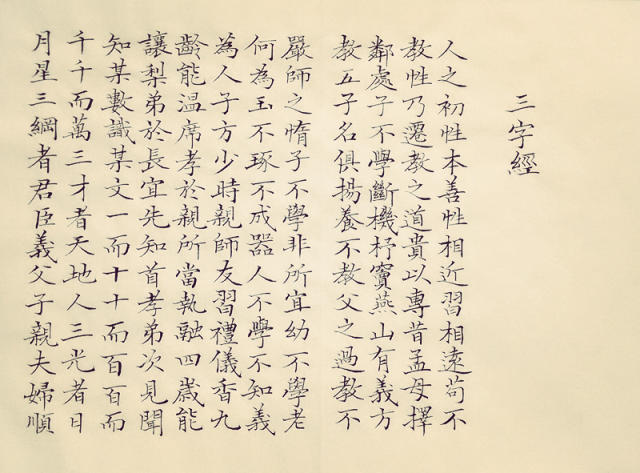 三字經
人之初性本善性相近習相遠苟不
教性乃遷教之道貴以專昔孟母擇
鄰處子不學斷機杼竇燕山有義方
教五子名俱揚養不教父之過教不
嚴師之惰子不學非所宜幼不學老
何為玉不琢不成器人不學不知義
為人子方少時親師友習禮儀香九
齡能温席孝於親所當執融四歲能
讓梨弟於長宜先知首孝弟次見聞
知某數識某文一而十十而百百而
千千而萬三才者天地人三光者日
月星三綱者君臣義父子親夫婦順